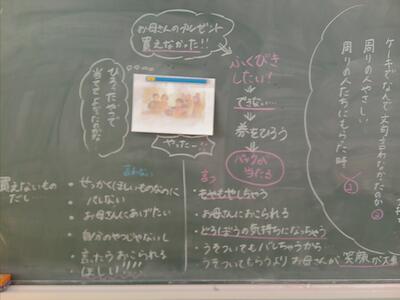 お母さんのプレゼント
買えなかった!!
ふくびき
したい!
できない…
券をひろう
バッグが
当たる
やったー!!
ひろったやつで
当ててよかったのかな
ケーキでなんで文句言わなかったのか②
周りの人やさしい
周りの人たちにもらった時
①
買えないもの
だし…
言わない
・せっかくほしいものなのに
・バレない
・お母さんにあげたい
・自分のやつじゃないし
・言ったらおこられる
・ほしい!!!!
言う
・もやもやしちゃう
・お母さんにおこられる
・どろぼうの気持ちになっちゃう
・うそついてもバレちゃうから
・うそついてもらうより お母さんが笑顔が大事